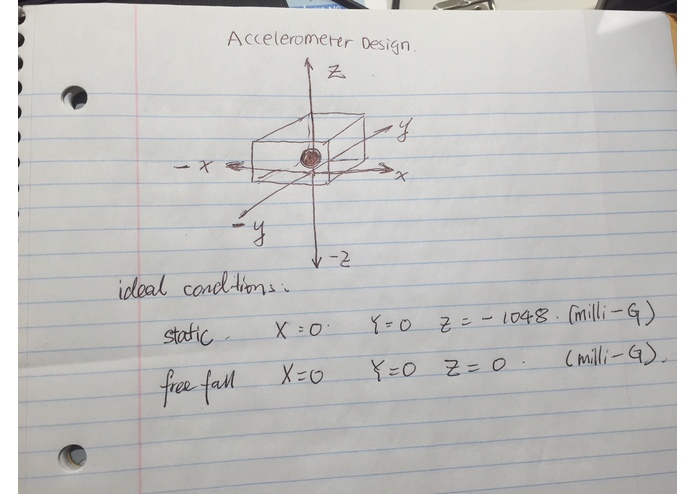 Accelerometer Design.
Z
y
- x
x
- y
-Z
ideal conditions:
static. X=0. Y=0 Z=-1048. (milli-G)
free fall X=0 Y=0 Z=0. (milli-G).